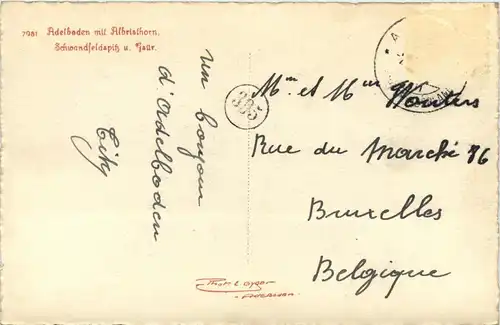 7981 Adelboden mit Albristhorn,
Schwandfeldspitz u. Gsür.
un bonjour
d'Adelboden
335
Mme et Mr Wouters
Rue du Marché 86
Bruxelles
Belgique
Phot. E. Gyger
Adelboden